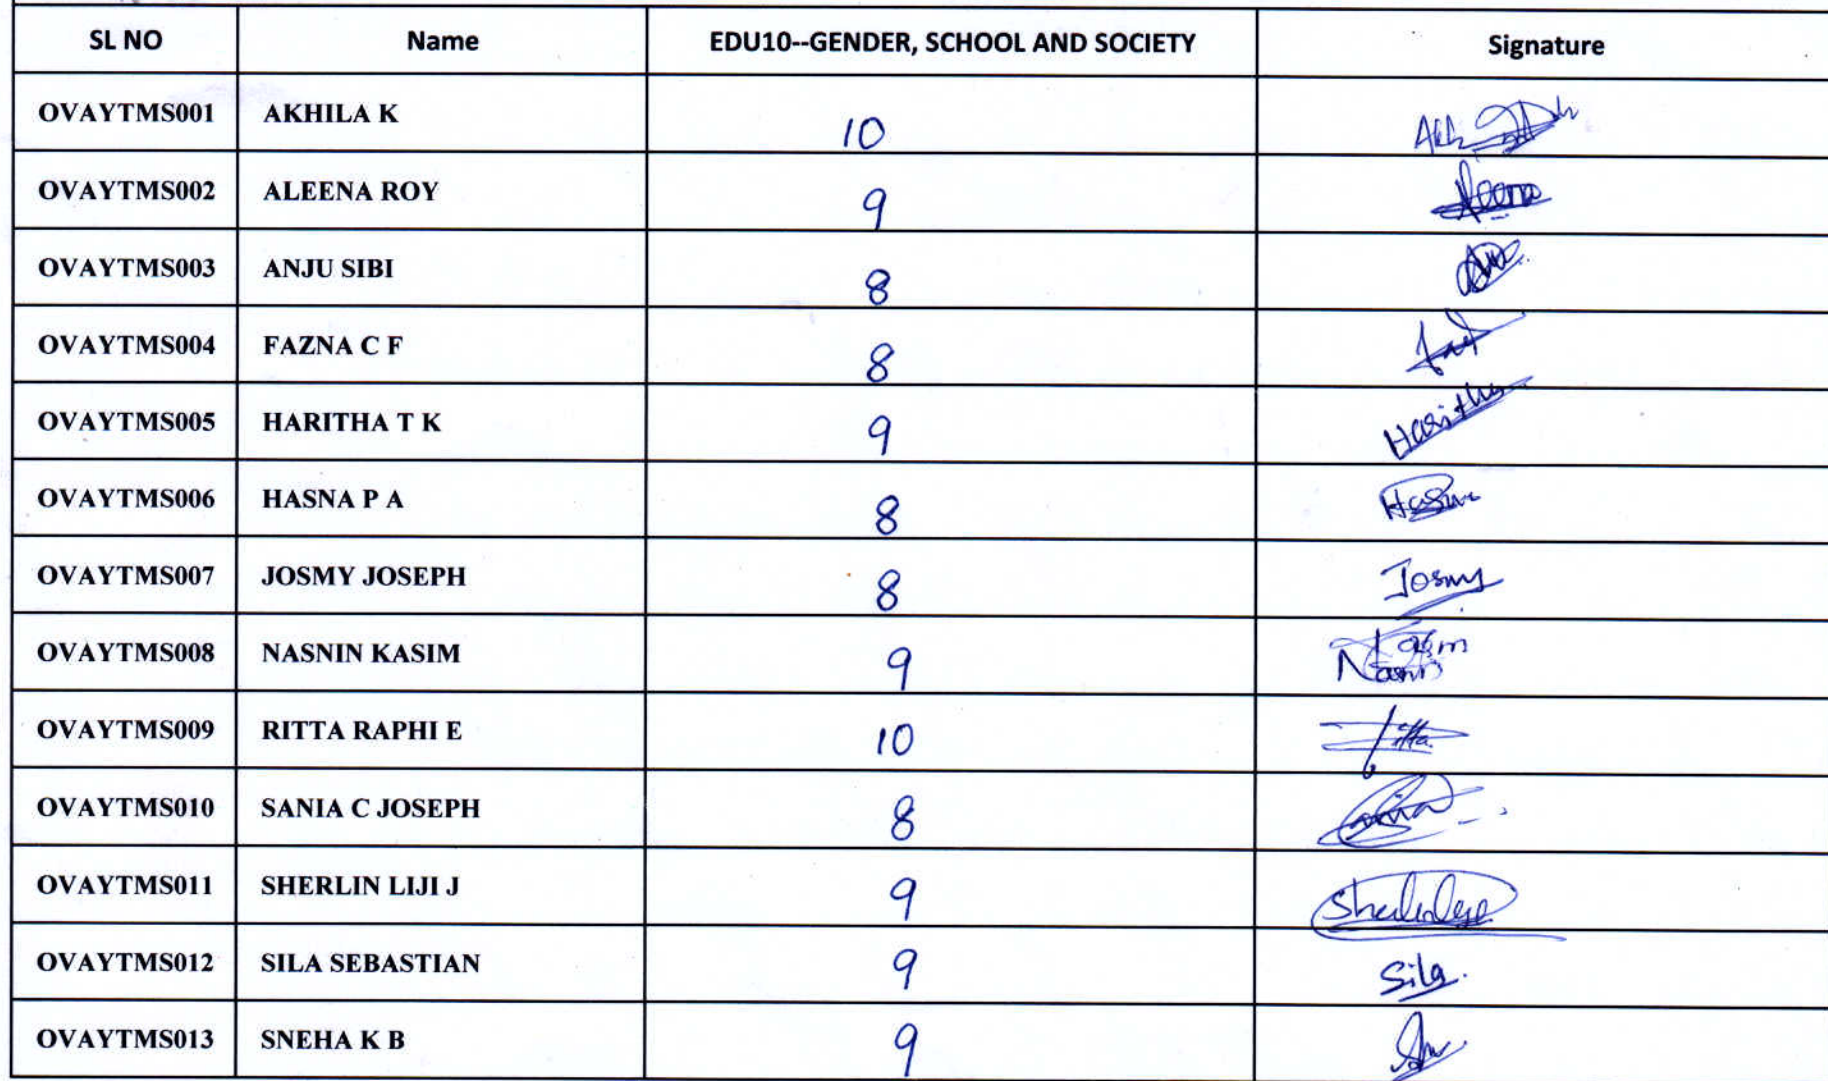 SL NO Name EDU10--GENDER, SCHOOL AND SOCIETY Signature
OVAYTMS001 AKHILA K 10
OVAYTMS002 ALEENA ROY 9 Aleena
OVAYTMS003 ANJU SIBI 8
OVAYTMS004 FAZNA C F 8
OVAYTMS005 HARITHA T K 9 Haritha
OVAYTMS006 HASNA P A 8 Hasna
OVAYTMS007 JOSMY JOSEPH 8 Josmy
OVAYTMS008 NASNIN KASIM 9
OVAYTMS009 RITTA RAPHI E 10 Ritta
OVAYTMS010 SANIA C JOSEPH 8 Sania
OVAYTMS011 SHERLIN LIJI J 9
OVAYTMS012 SILA SEBASTIAN 9 Sila.
OVAYTMS013 SNEHA K B 9